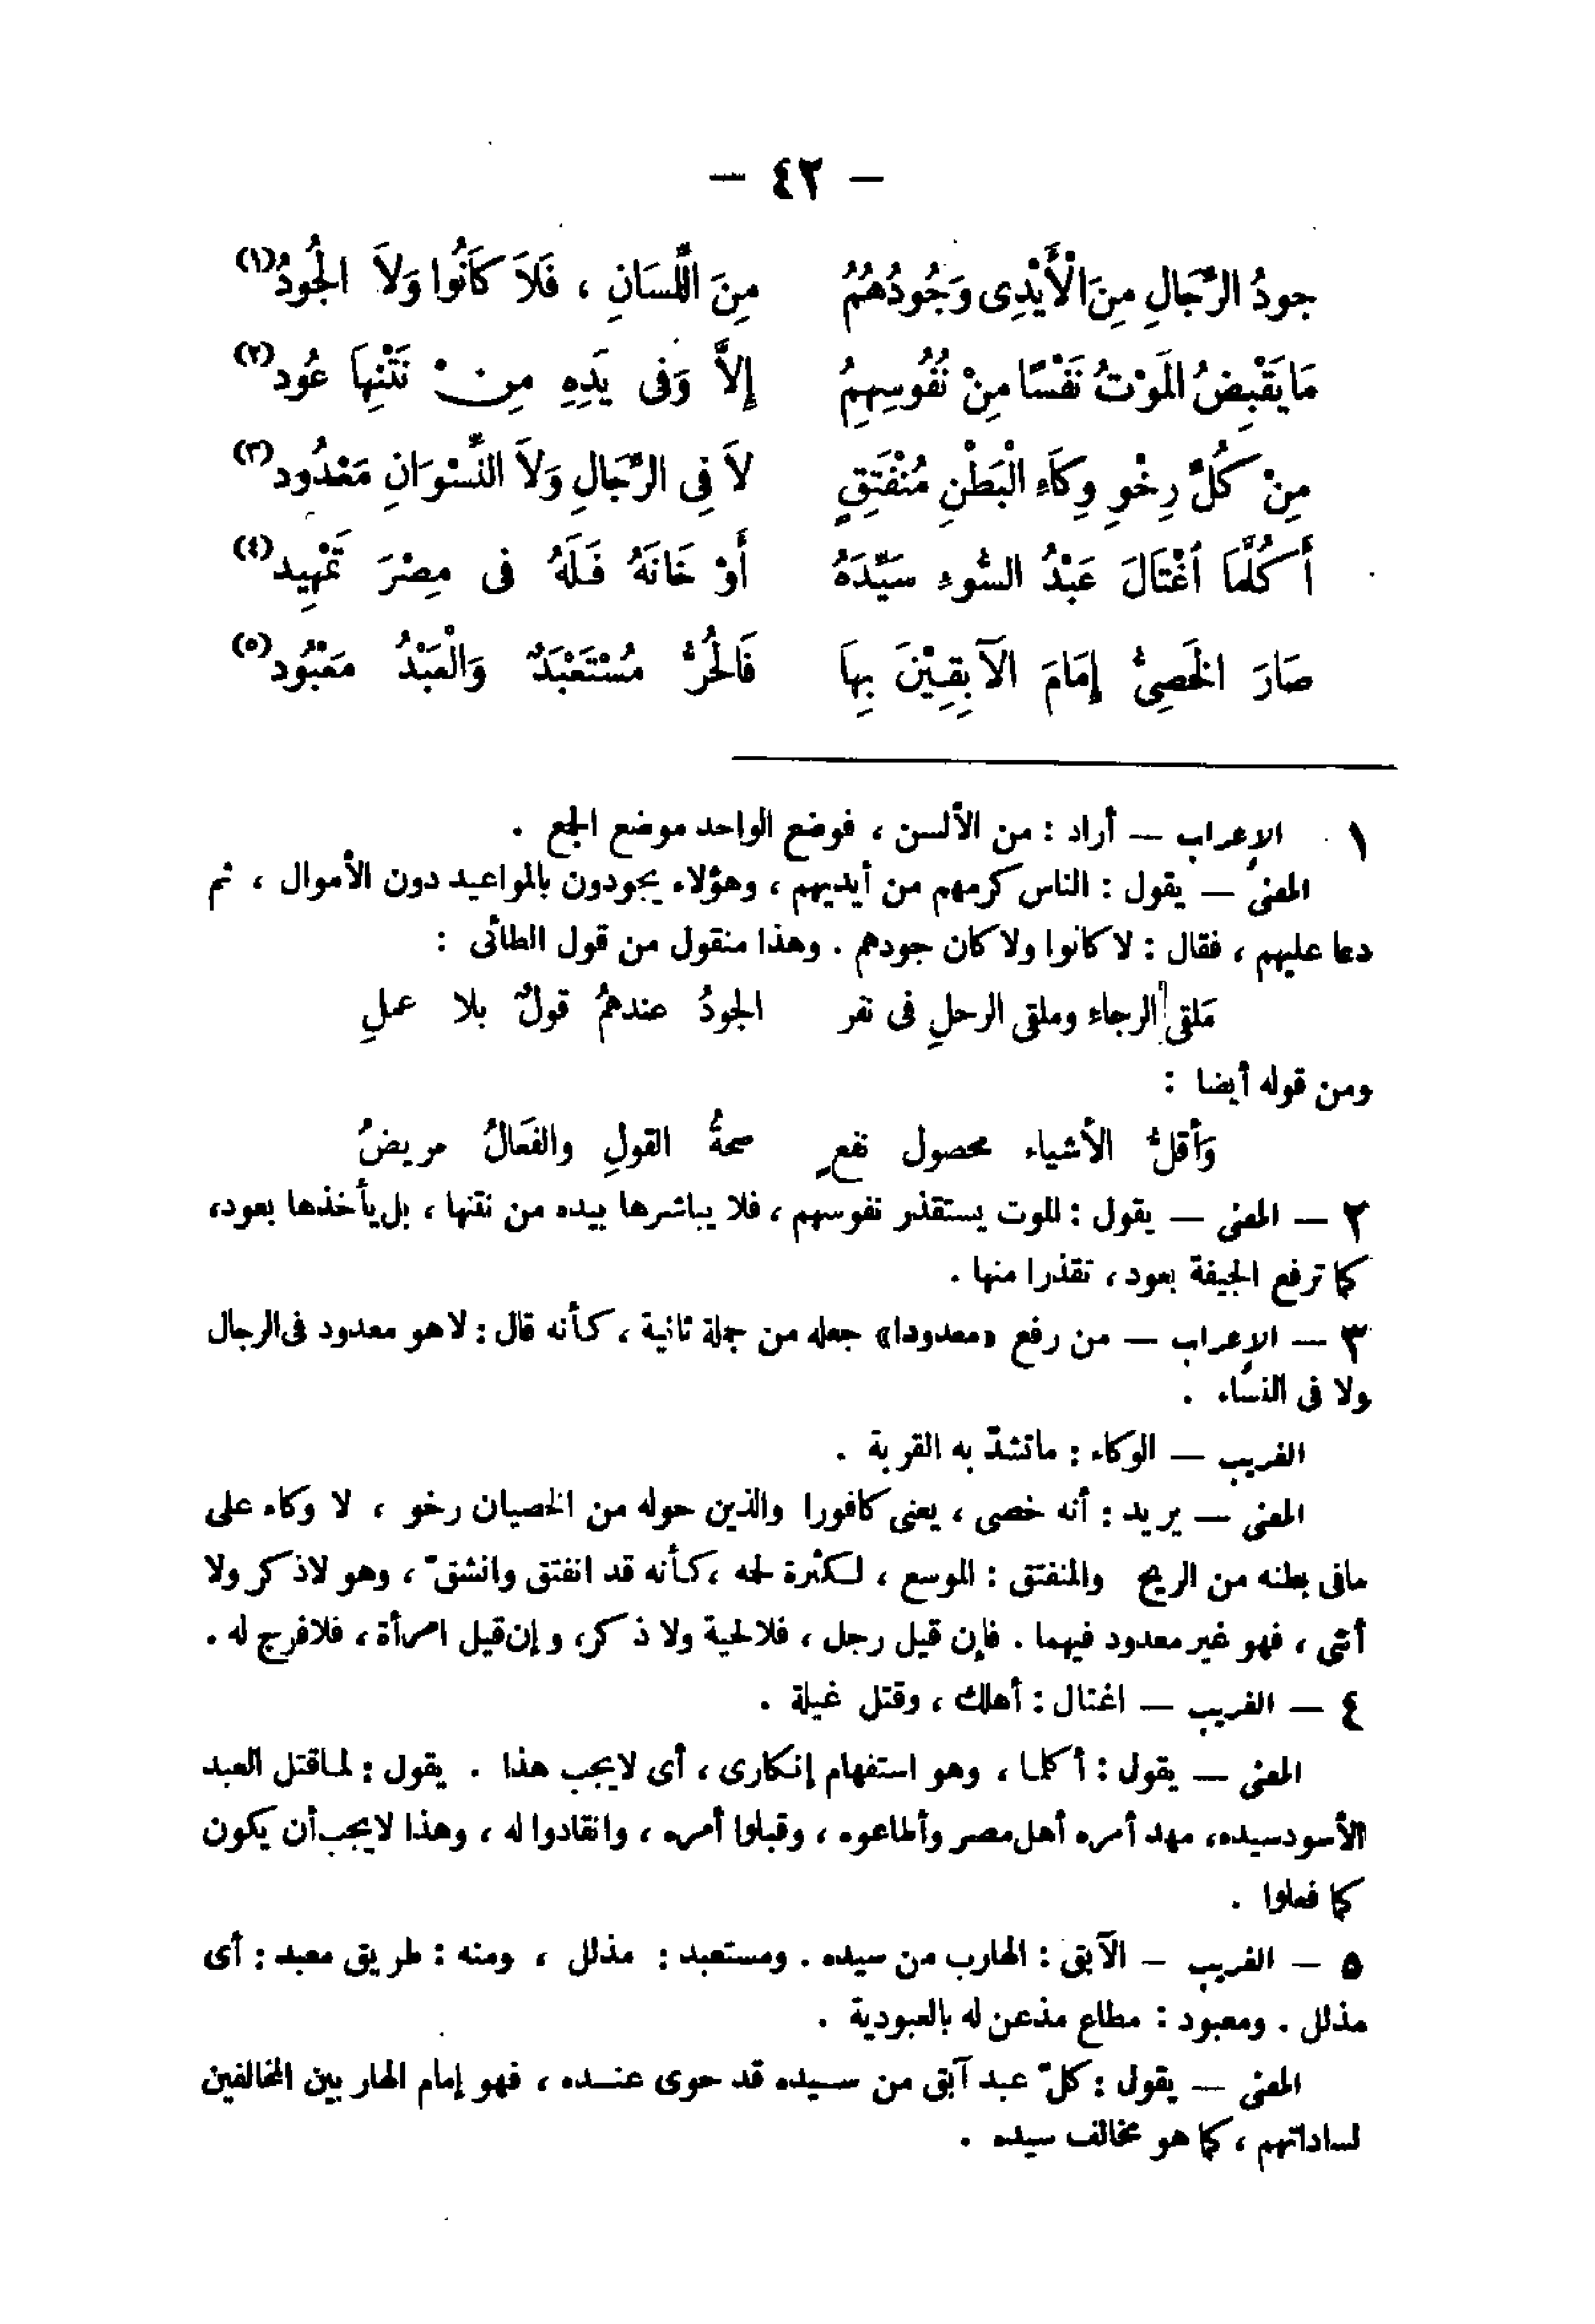 — ٤٢ —
جودُ الرِّجَالِ مِنَ الْأَيْدِى وَجُودُهُمُ مِنَ اللِّسَانِ ، فَلاَ كَانُوا وَلاَ الجُودُ(١)
مَا يَقْبِضُ المَوْتُ نَفْسًا مِنْ نُفُوسِهِمُ إِلاَّ وَفى يَدِهِ مِنْ نَتْنِهَا عُود(٢)
مِنْ كُلِّ رِخْوِ وِكَاءِ الْبَطْنِ مُنْفَتِقٍ لاَ فِى الرِّجَالِ وَلاَ النِّسْوَانِ مَعْدُود(٣)
أَكُلَّمَا اُغْتَالَ عَبْدُ السُّوءِ سَيِّدَهُ أَوْ خَانَهُ فَلَهُ فى مِصْرَ تَمْهِيد(٤)
صَارَ الخَصِىُّ إِمَامَ الآبِقِيْنَ بِهَا فَالحُرُّ مُسْتَعْبَدٌ وَالْعَبْدُ مَعْبُود(٥)
١ الإعراب — أراد : من الألسن ، فوضع الواحد موضع الجمع .
المعنى — يقول : الناس كرمهم من أيديهم ، وهؤلاء يجودون بالمواعيد دون الأموال ، ثم
دعا عليهم ، فقال : لا كانوا ولا كان جودهم . وهذا منقول من قول الطائى :
مَلقى الرجاء وملقى الرحلِ فى نفر الجودُ عندهمُ قولٌ بلا عملِ
ومن قوله أيضا :
وَأقلُّ الأشياء محصول نفعٍ صحةُ القولِ والفَعَالُ مريضُ
٢ — المعنى — يقول : الموت يستقذر نفوسهم ، فلا يباشرها بيده من نتنها ، بل يأخذها بعود،
كما ترفع الجيفة بعود ، تقذرا منها .
٣ — الإعراب — من رفع «معدودا» جعله من جملة ثانية ، كأنه قال : لا هو معدود فى الرجال
ولا فى النساء .
الغريب — الوكاء : ما تشدّ به القربة .
المعنى — يريد : أنه خصى ، يعنى كافورا والذين حوله من الخصيان رخو ، لا وكاء على
مافى بطنه من الريح والمنفتق : الموسع ، لكثرة لحمه ، كأنه قد انفتق وانشقّ ، وهو لاذكر ولا
أنثى ، فهو غير معدود فيهما . فإن قيل رجل ، فلا لحية ولا ذكر، وإن قيل امرأة ، فلافرج له .
٤ — الغريب — اغتال : أهلك ، وقتل غيلة .
المعنى — يقول : أكلما ، وهو استفهام إنكارى ، أى لايجب هذا . يقول : لما قتل العبد
الأسود سيده، مهد أمره أهل مصر وأطاعوه ، وقبلوا أمره ، وانقادوا له ، وهذا لايجب أن يكون
كما فعلوا .
٥ — الغريب — الآبق : الهارب من سيده . ومستعبد : مذلل ، ومنه : طريق معبد : أى
مذلل . ومعبود : مطاع مذعن له بالعبودية .
المعنى — يقول : كلّ عبد آبق من سيده قد حوى عنده ، فهو إمام الهاربين المخالفين
لساداتهم ، كما هو مخالف سيده .